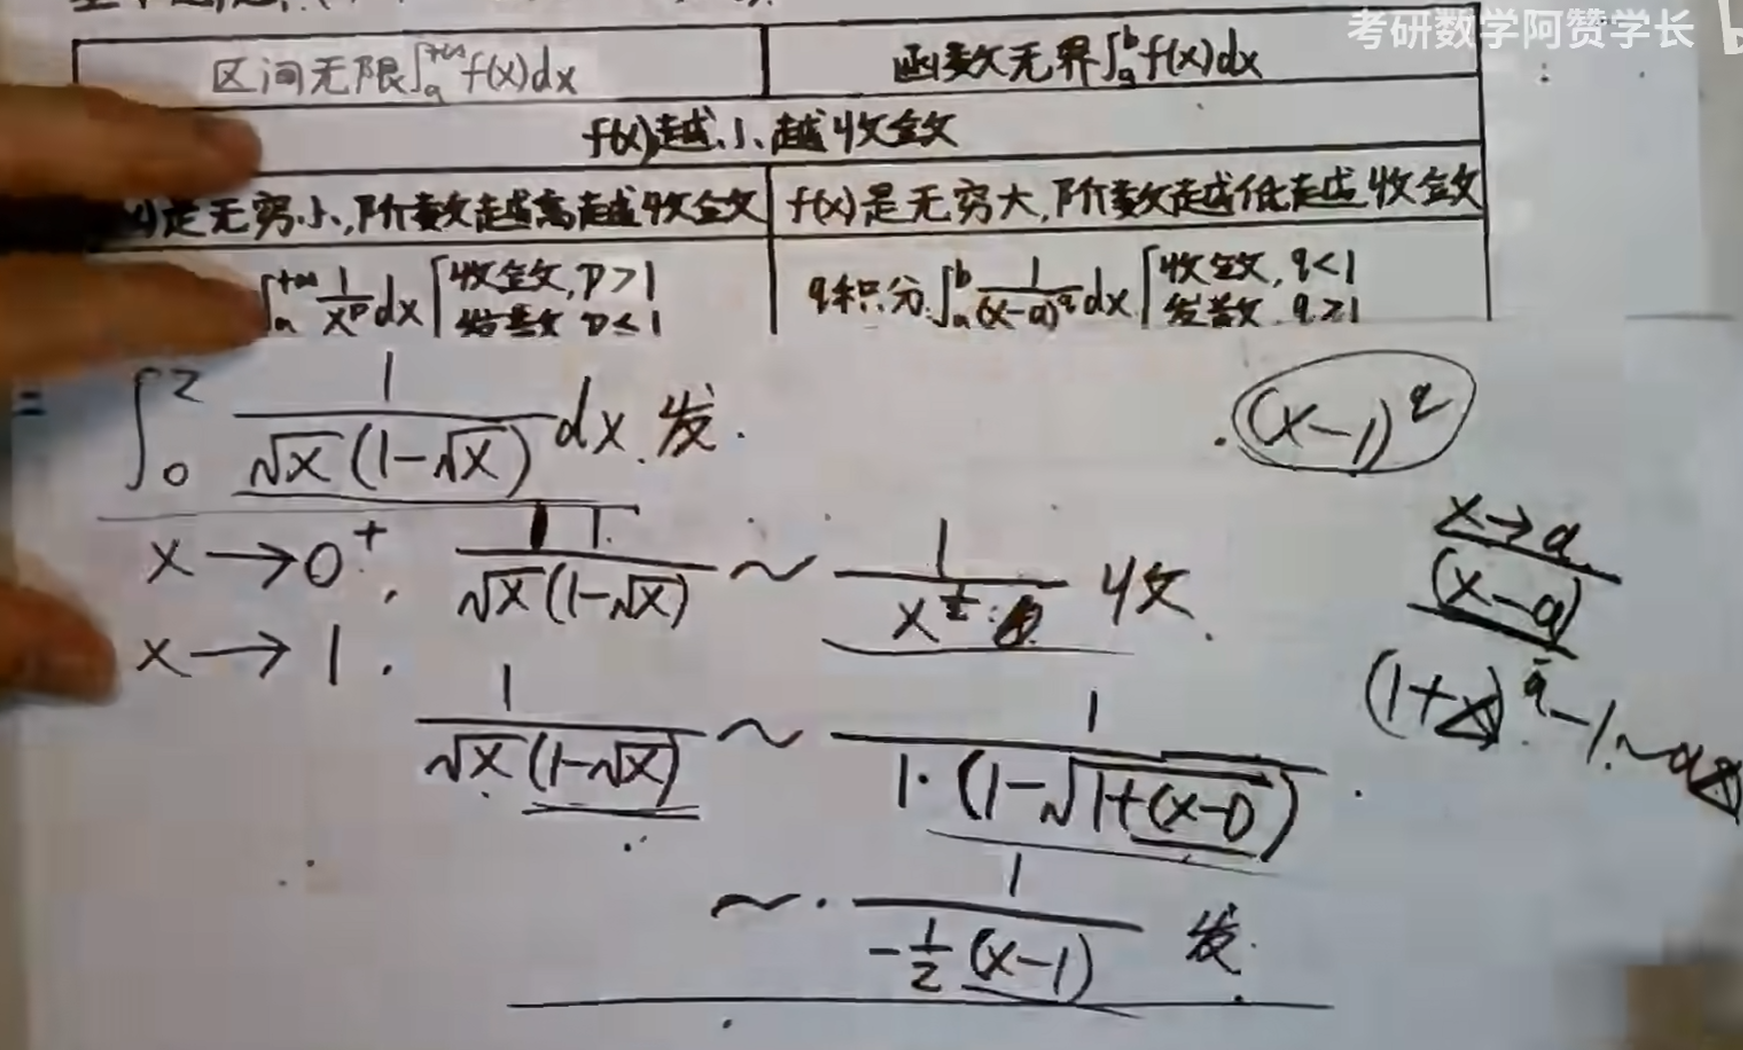 考研数学阿赞学长
区间无限∫_a^{+∞} f(x)dx
函数无界∫_a^b f(x)dx
f(x)越小、越收敛
是无穷小,阶数越高越收敛
f(x)是无穷大,阶数越低越收敛
∫_a^{+∞} 1/x^p dx { 收敛, p>1
发散 p≤1
q积分 ∫_a^b 1/(x-a)^q dx { 收敛, q<1
发散 q≥1
∫_0^2 1/(√x(1-√x)) dx. 发.
(x-1)^q
x→0^+, 1/(√x(1-√x)) ~ 1/x^{1/2} 收.
x→a
(x-a)
x→1. 1/(√x(1-√x)) ~ 1/(1·(1-√(1+(x-1))))
(1+x)^a-1~ax
~ 1/(-1/2 (x-1)) 发.